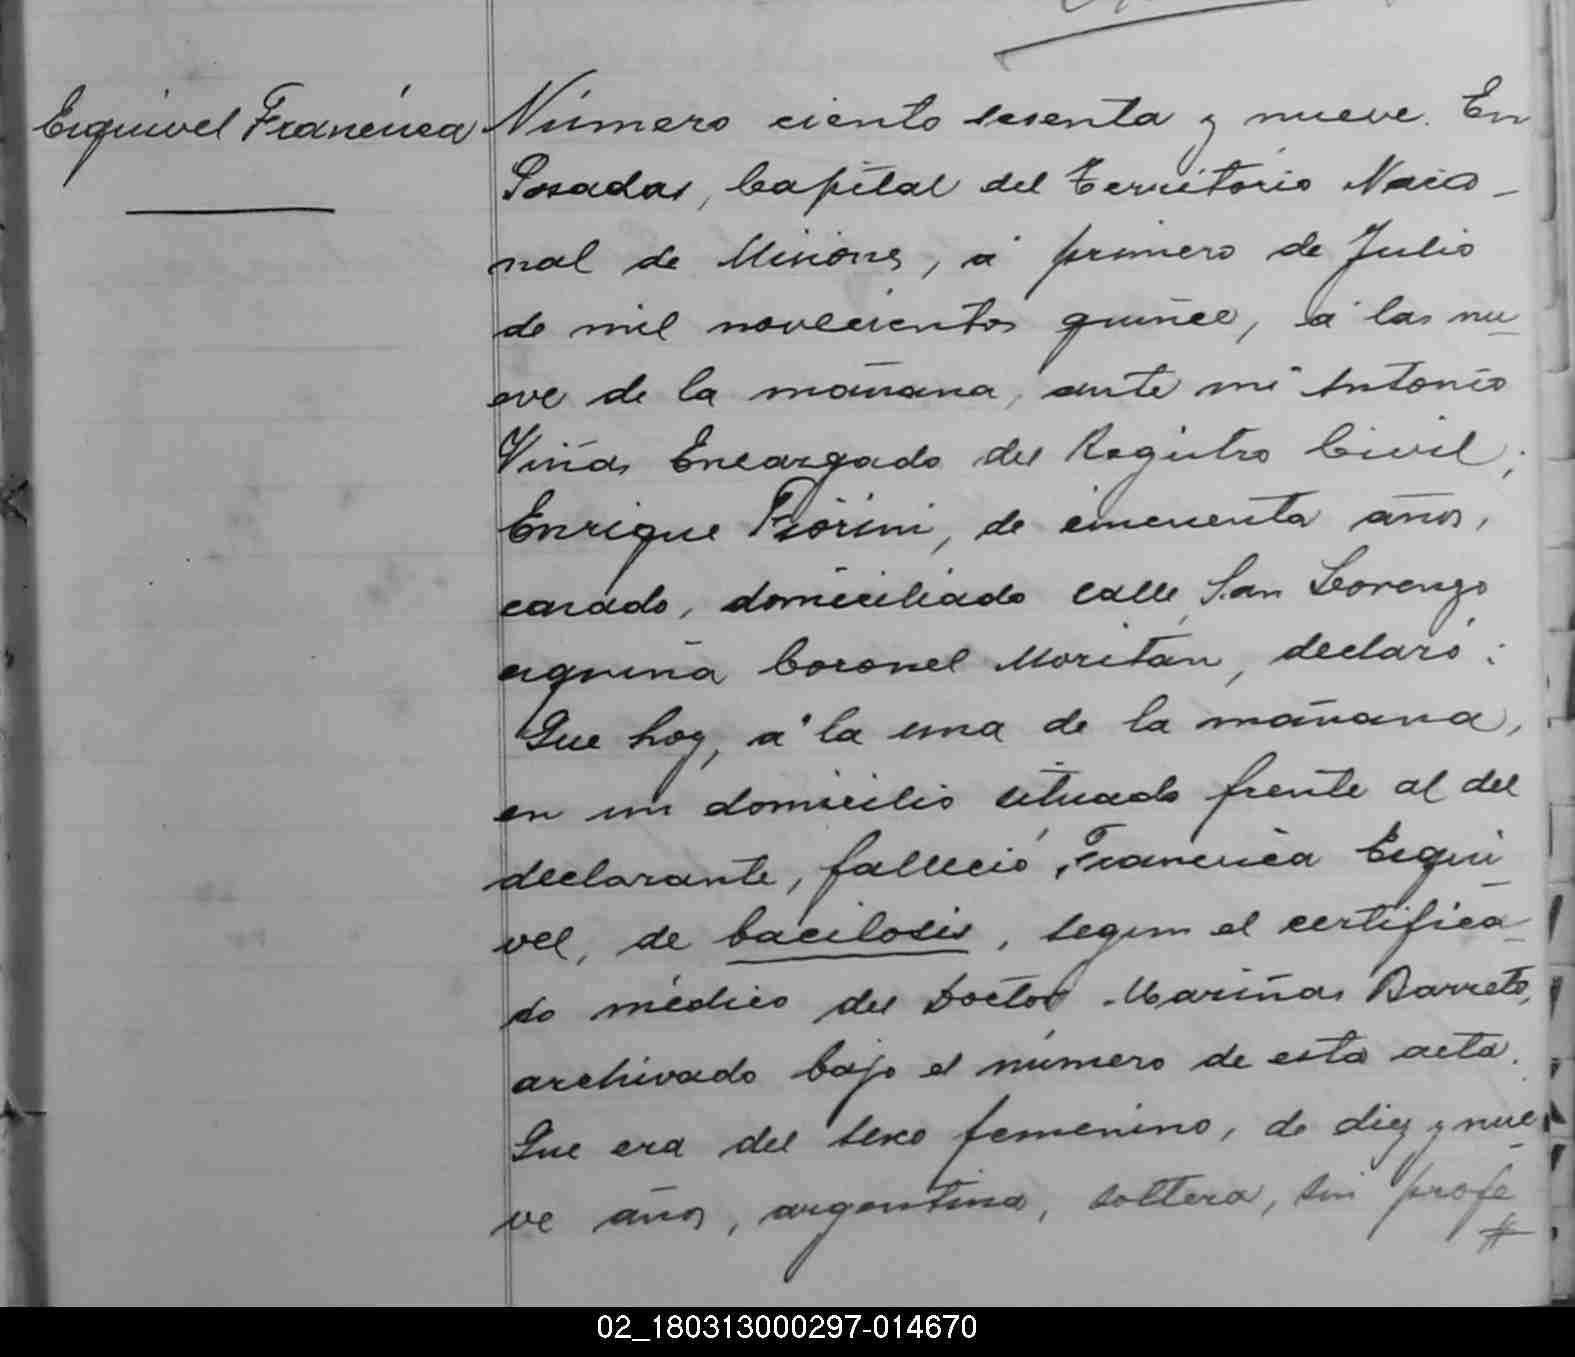 Esquivel Francisca
Número ciento sesenta y nueve. En
Posadas, Capital del Territorio Nacio-
nal de Misiones, á primero de Julio
de mil novecientos quince, á las nu-
eve de la mañana, ante mi Antonio
Viñas Encargado del Registro Civil;
Enrique Fiorini, de cincuenta años,
casado, domiciliado calle San Lorenzo
esquina Coronel Moritán, declaró:
Que hoy, á la una de la mañana,
en un domicilio situado frente al del
declarante, falleció Francisca Esqui
vel, de bacilosis, segun el certifica-
do médico del Doctor Mariñas Barreto,
archivado bajo el número de esta acta.
Que era del sexo femenino, de diez y nue-
ve años, argentina, soltera, sin profe
#
02_180313000297-014670